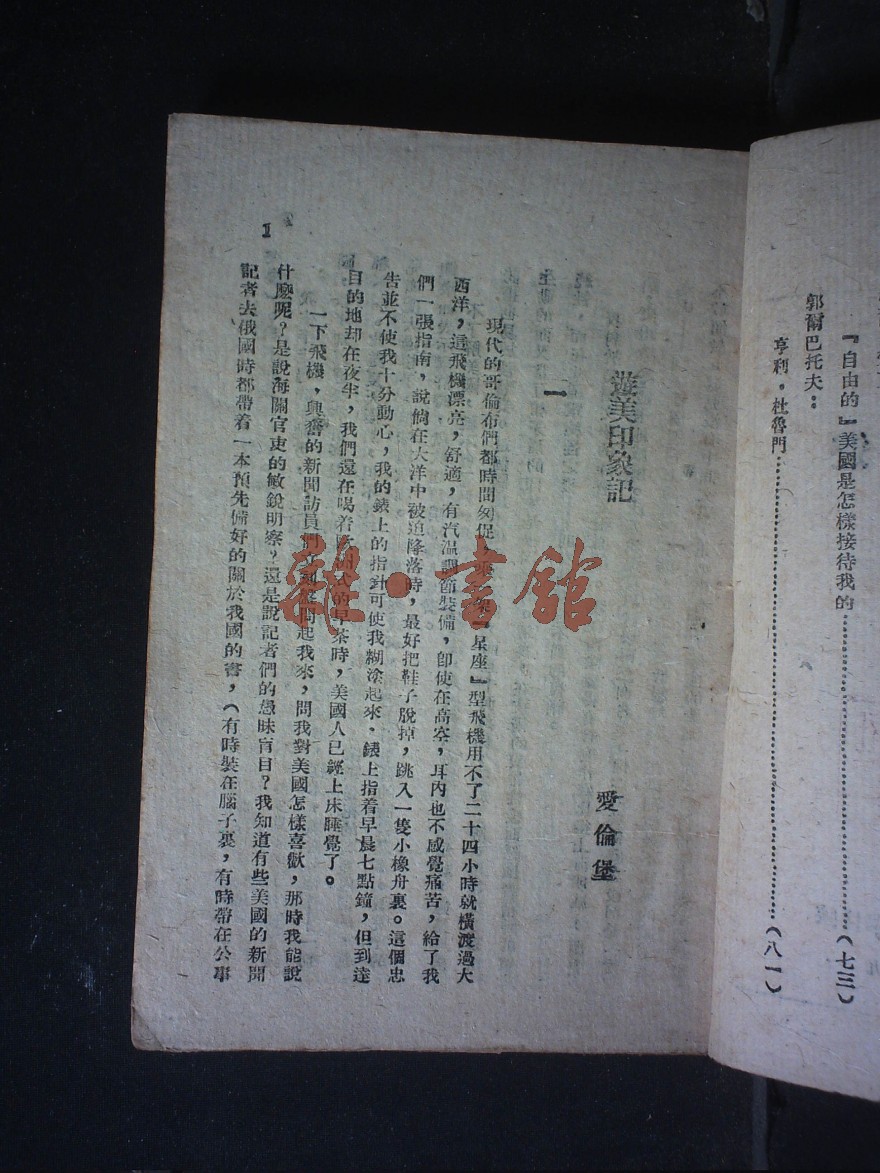 『自由的』美國是怎樣接待我的……………………………(七三)
郭爾巴托夫：
亨利·杜魯門……………………………………(八一)
遊美印象記
愛倫堡
一
現代的哥倫布們都時間匆促，乘 星座』型飛機用不了二十四小時就橫渡過大
西洋，這飛機漂亮，舒適，有汽温調節裝備，即使在高空，耳內也不感覺痛苦，給了我
們一張指南，說倘在大洋中被迫降落時，最好把鞋子脫掉，跳入一隻小橡舟裏。這個忠
告並不使我十分動心，我的錶上的指針可使我糊塗起來，錶上指着早晨七點鐘，但到達
目的地却在夜半，我們還在喝着 式的早茶時，美國人已經上床睡覺了。
一下飛機，興奮的新聞訪員們 問起我來，問我對美國怎樣喜歡，那時我能說
什麽呢？是說海關官吏的敏銳明察？還是說記者們的愚昧盲目？我知道有些美國的新聞
記者去俄國時都帶着一本預先備好的關於我國的書，（有時裝在腦子裏，有時帶在公事
1
雜·書館